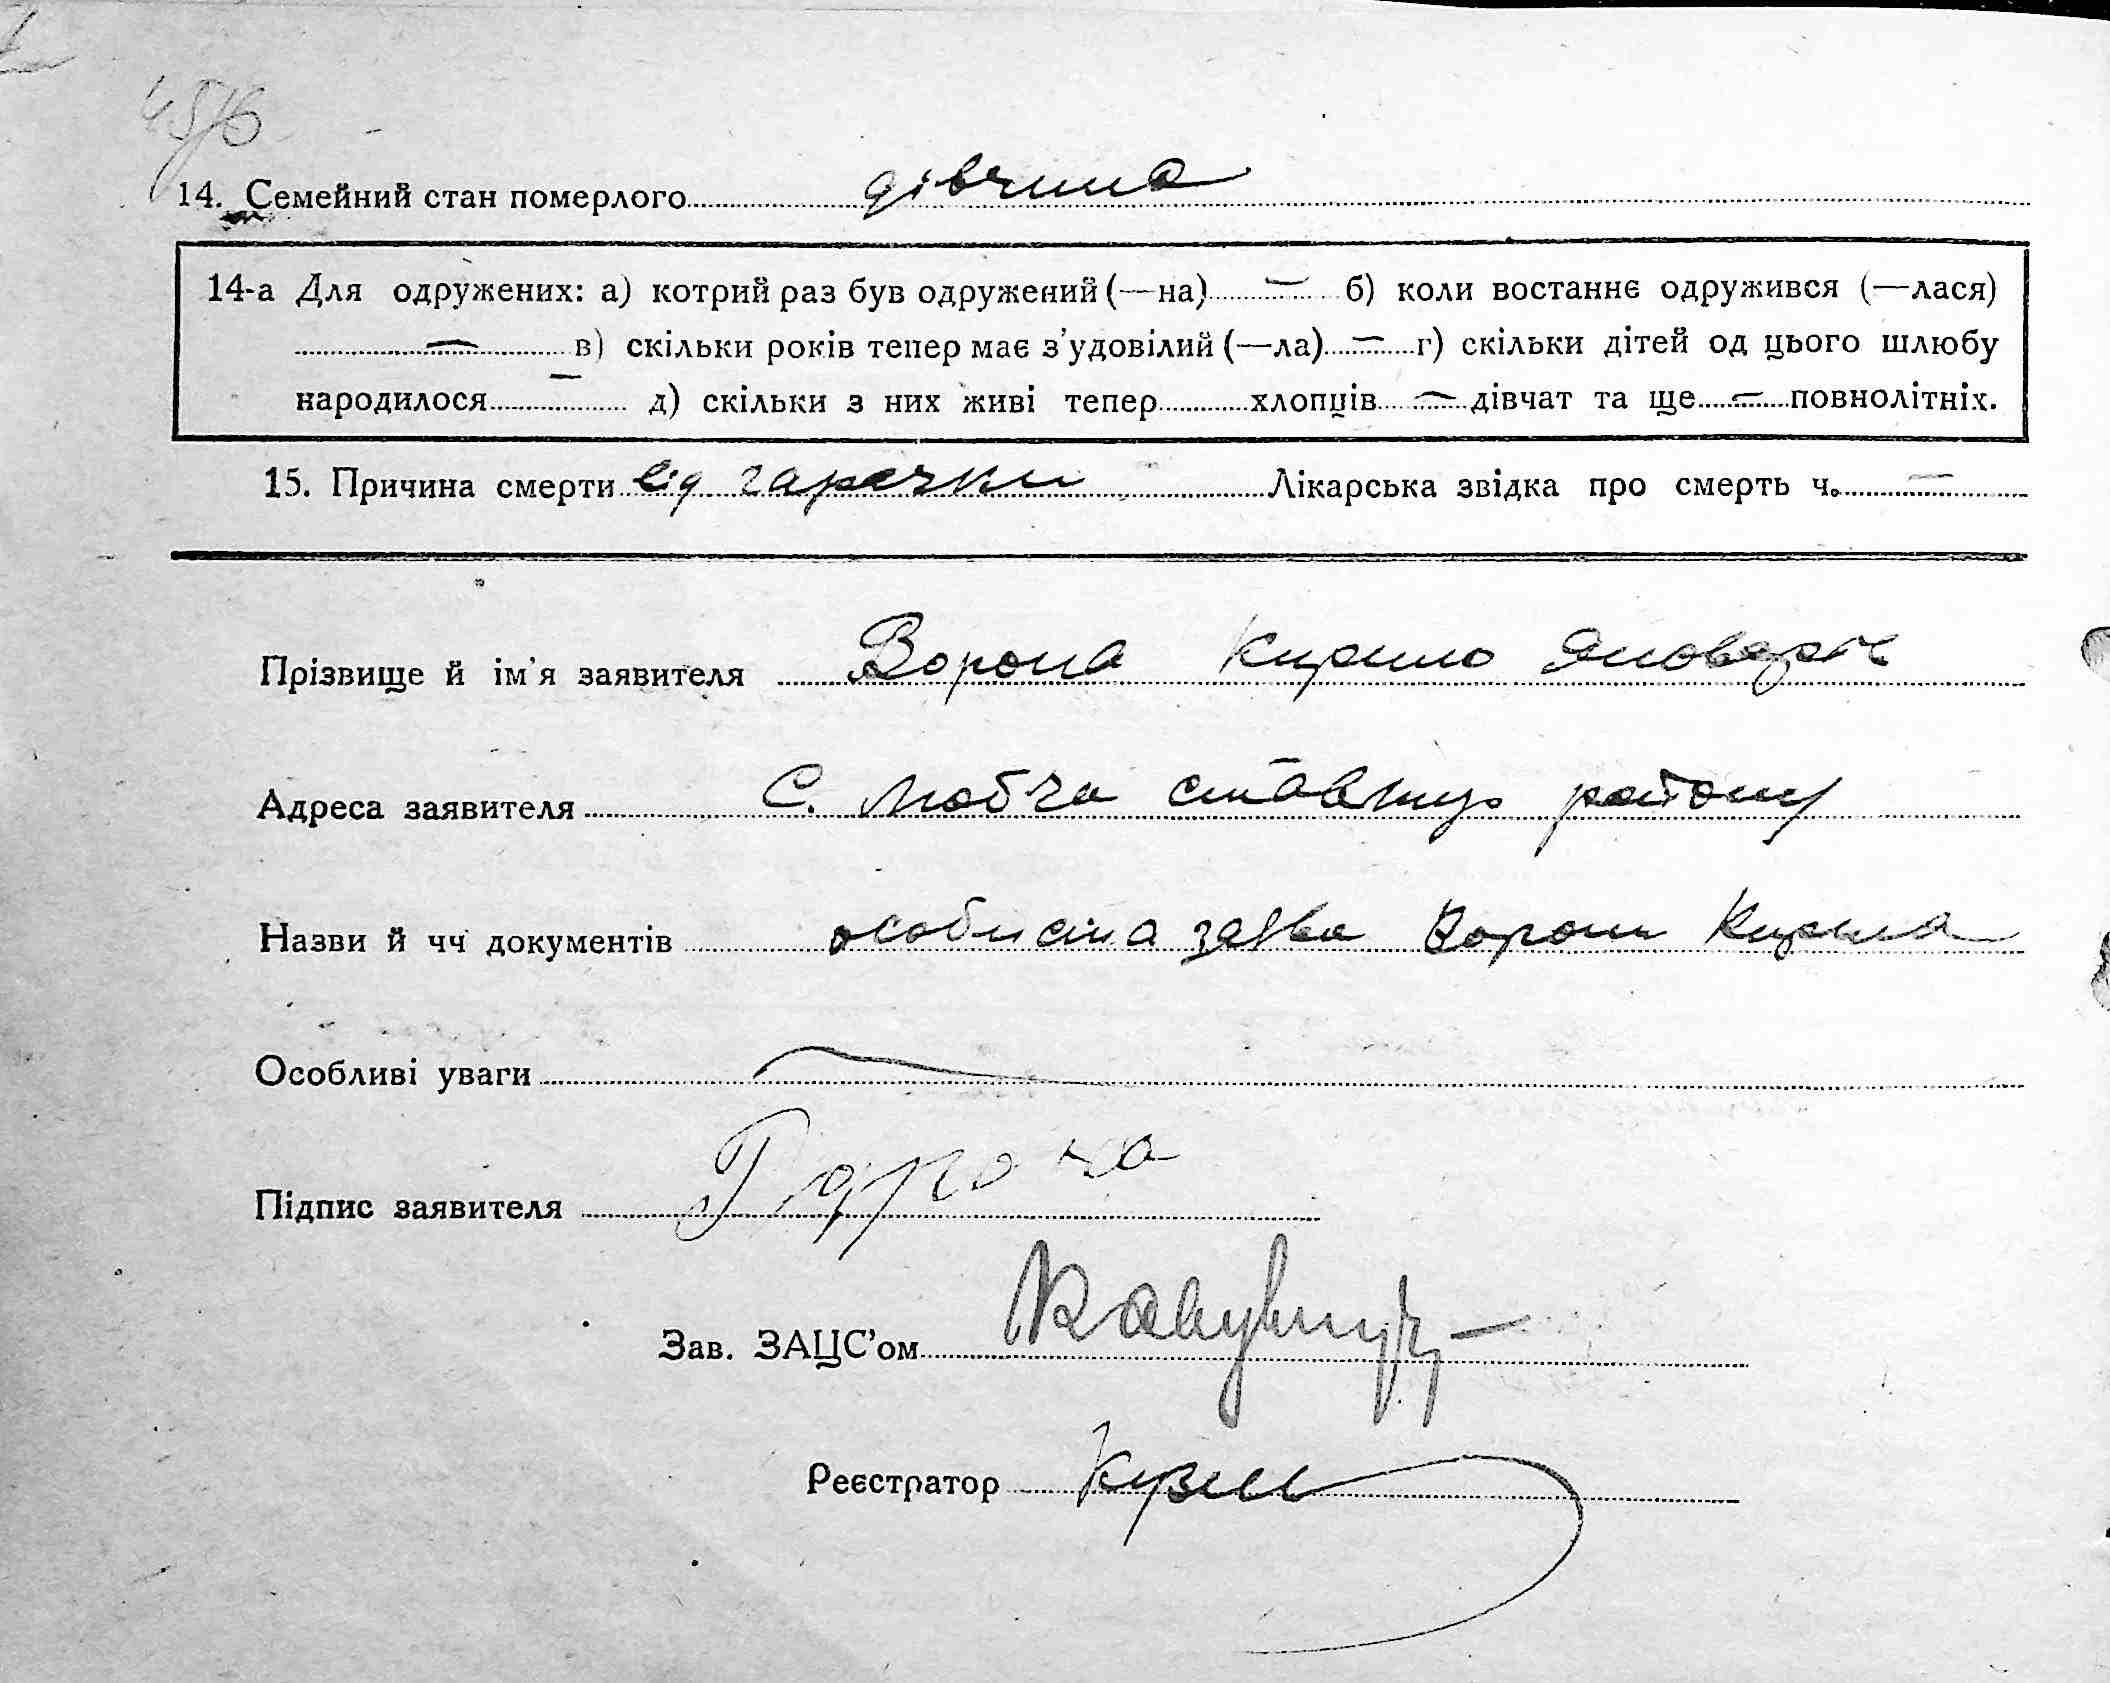 45/6
14. Семейний стан померлого дівчина
14-а Для одружених: а) котрий раз був одружений (—на) — б) коли востаннє одружився (—лася)
— в) скільки років тепер має з'удовілий (—ла) — г) скільки дітей од цього шлюбу
народилося — д) скільки з них живі тепер хлопців — дівчат та ще — повнолітніх.
15. Причина смерти від гарячки Лікарська звідка про смерть ч. —
Прізвище й ім'я заявителя Ворона Кирило
Адреса заявителя С. району
Назви й чч документів особиста заява Ворони Кирила
Особливі уваги —
Підпис заявителя
Зав. ЗАЦС'ом
Реєстратор